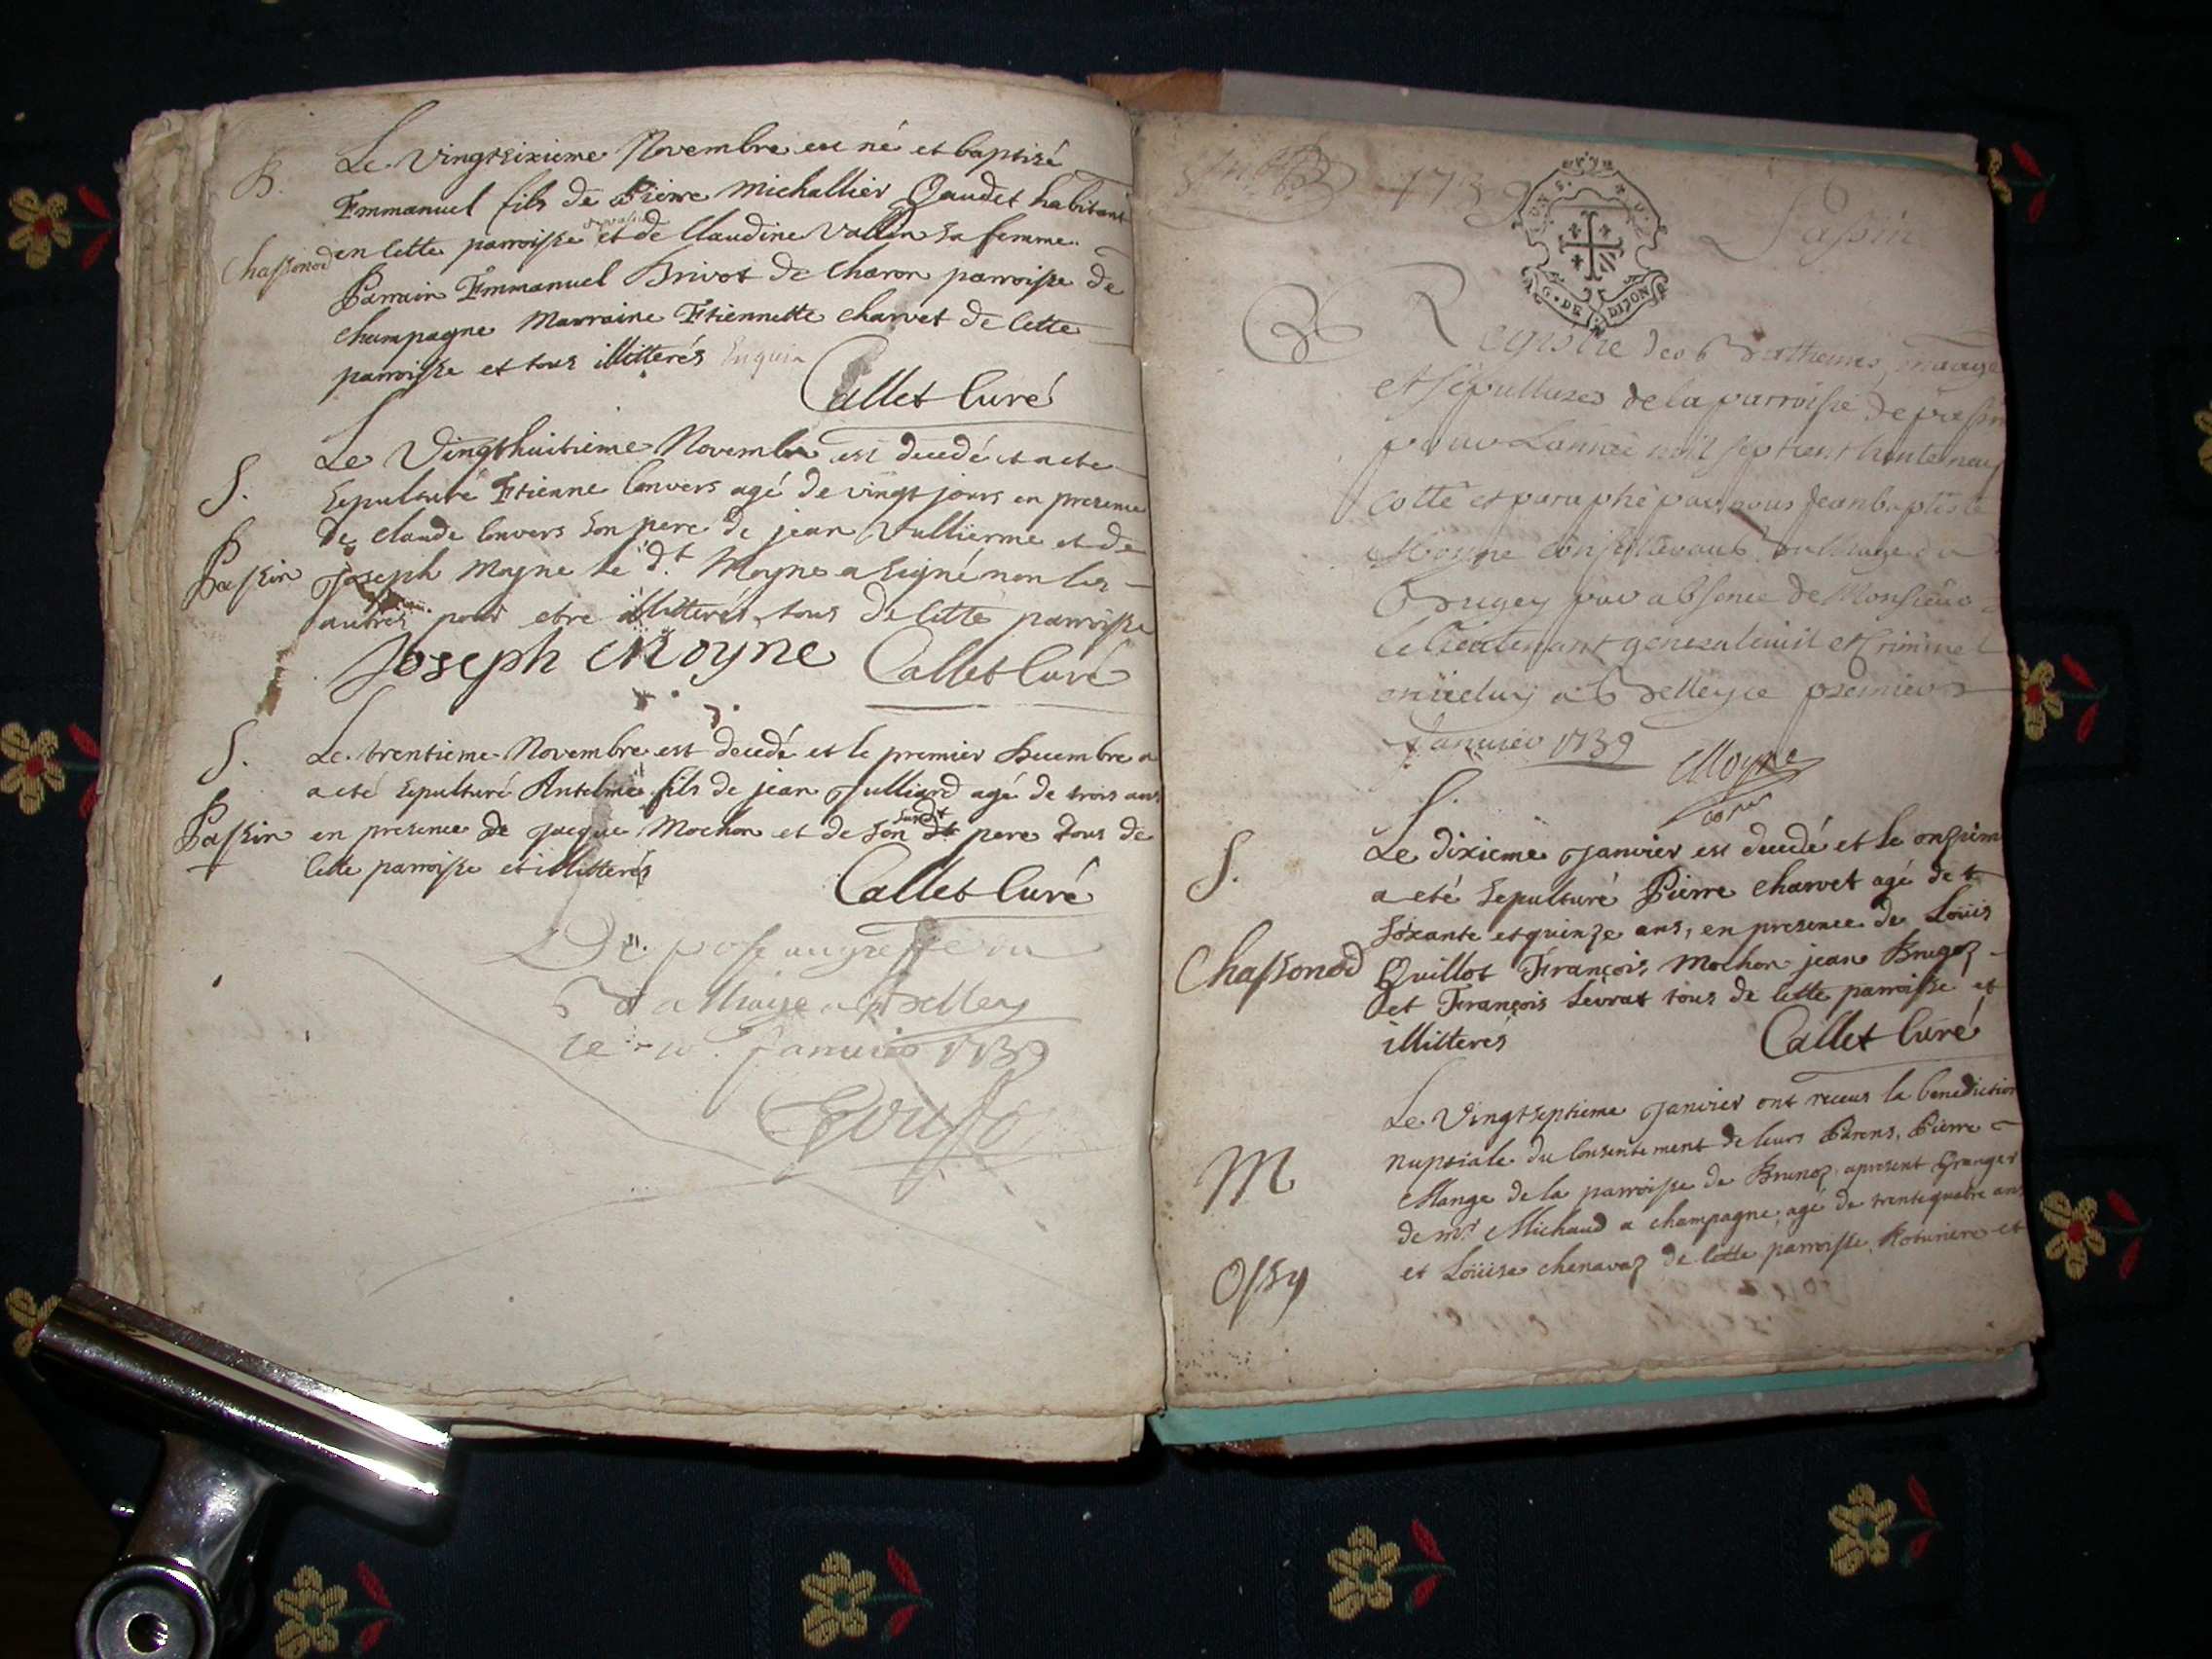 B.
Le Vingtsixieme Novembre est né et baptisé
Emmanuel fils de Pierre Michallier Gaudet habitant
Chassonod
en cette parroisse et de Claudine Vallin sa femme.
Parrain Emmanuel Brivot de Charon parroisse de
champagne Marraine Etiennette charvet de cette
parroisse et tous illitterés
Callet Curé
Le Vingthuitieme Novembre est decedé et a eté
S.
sepulturé Etienne Convers agé de vingt jours en presence
de claude Convers son pere de jean Vullierme et de
Passin
Joseph Moyne le d.t Moyne a signé non les
autres pour etre illitterés, tous de cette parroisse
Joseph Moyne Callet Curé
S.
Le trentieme Novembre est decedé et le premier Decembre a
a eté sepulturé Antelme fils de jean Julliard agé de trois ans
Passin
en presence de jacque Mochon et de son susdt pere tous de
cette parroisse et illitterés
Callet Curé
Deposé au greffe du
Balliage a Belley
le janvier 1739
1739
UN S.
G. DE DIJON
Passin
Registre des Bathemes, mariage
et sepultures de la parroisse de passin
pour Lannée mil sept cent trente neuf
cotté et paraphé par nous Jean baptiste
Moyne au balliage du
Bugey par absence de Monsieur
le lieutenant general civil et Criminel
a Belley ce premier
Janvier 1739
Moyne
S.
Le dixieme janvier est decedé et le onzieme
a eté sepulturé Pierre charvet agé de
soixante et quinze ans, en presence de Loüis
Chassonod
Quillot François Mochon jean Brugoz
et François Levrat tous de cette parroisse et
illitterés
Callet Curé
Le Vingtseptieme janvier ont receus la benediction
M
nuptiale du consentement de leurs Parens, Pierre
Mange de la parroisse de Brunoz apresent Granger
de mr Michaud a champagne, agé de trentequatre ans
Ossy
et Loüise chenavaz de cette parroisse, Roturiere et